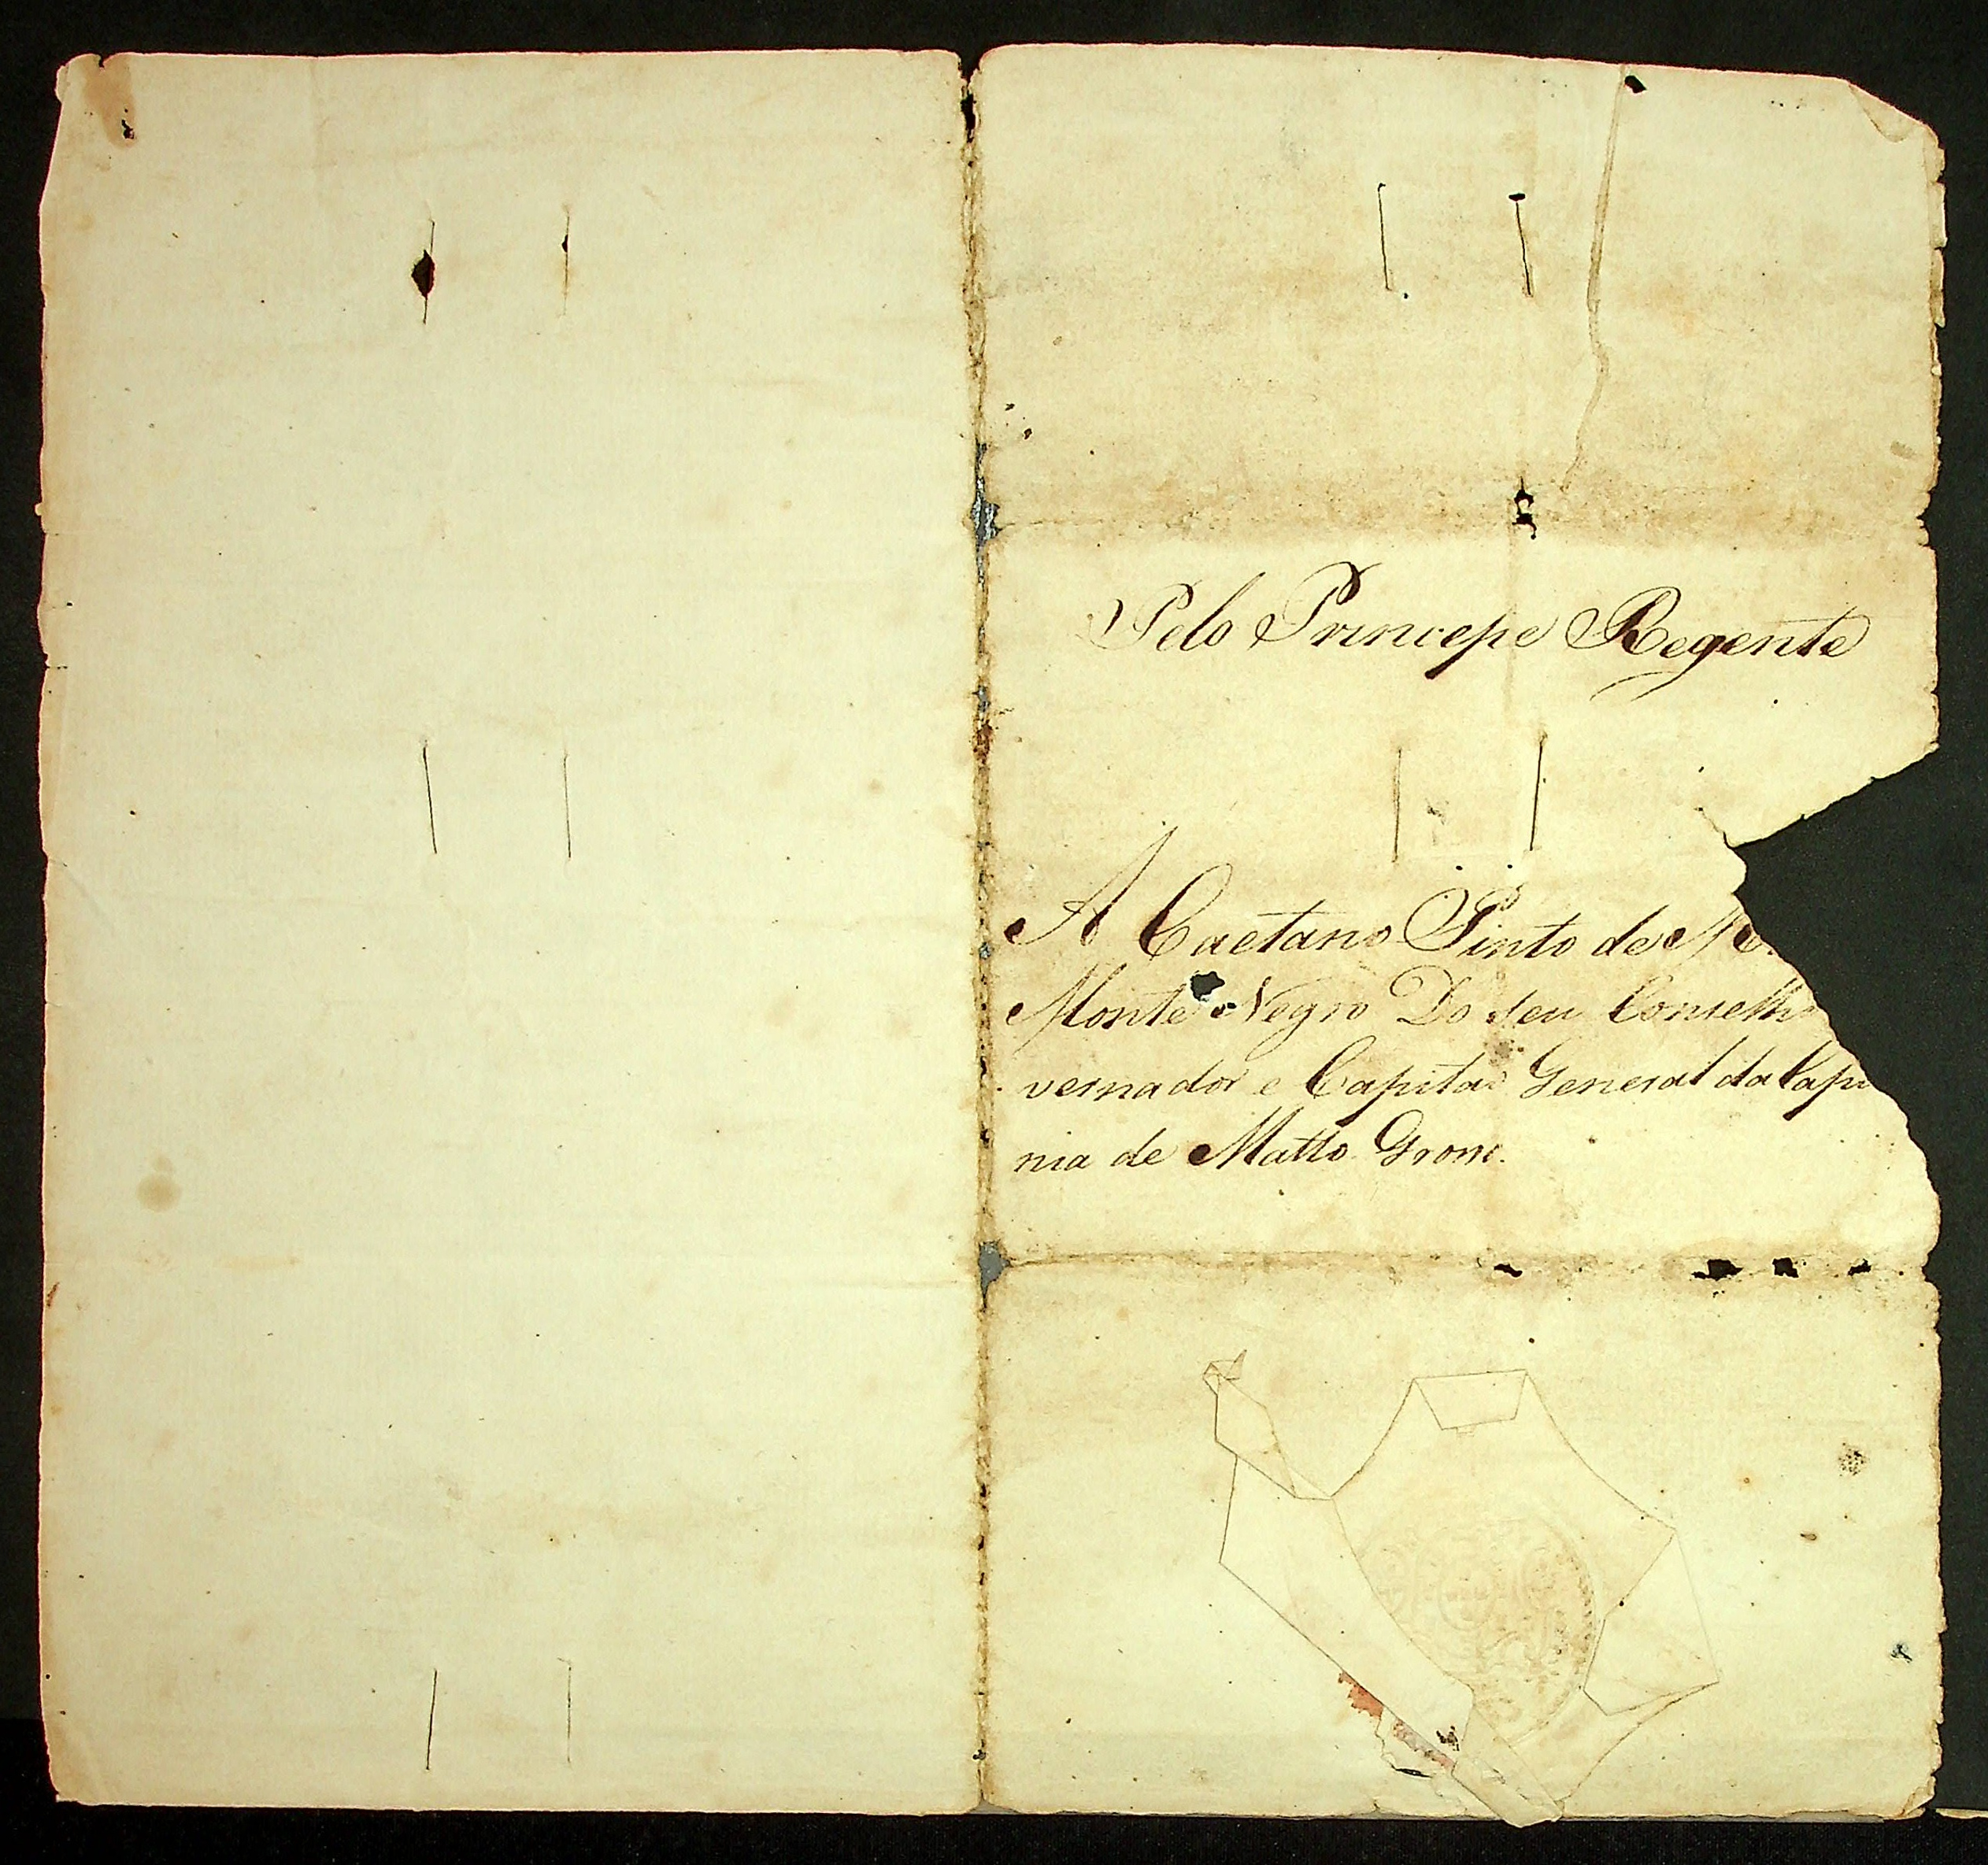 Pelo Princepe Regente
A Caetano Pinto de
Monte Negro Do seu Conselh
vernador e Capitaõ General da Capi
nia de Matto Grosso